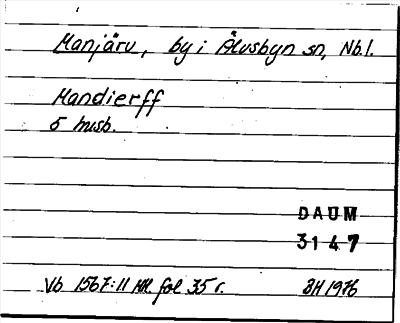 Manjärv, by i Älvsbyn sn, Nb.l.
Mandierff
5 husb.
DAUM
3147
Vb 1567:11 MR. fol 35 r.
BH 1976